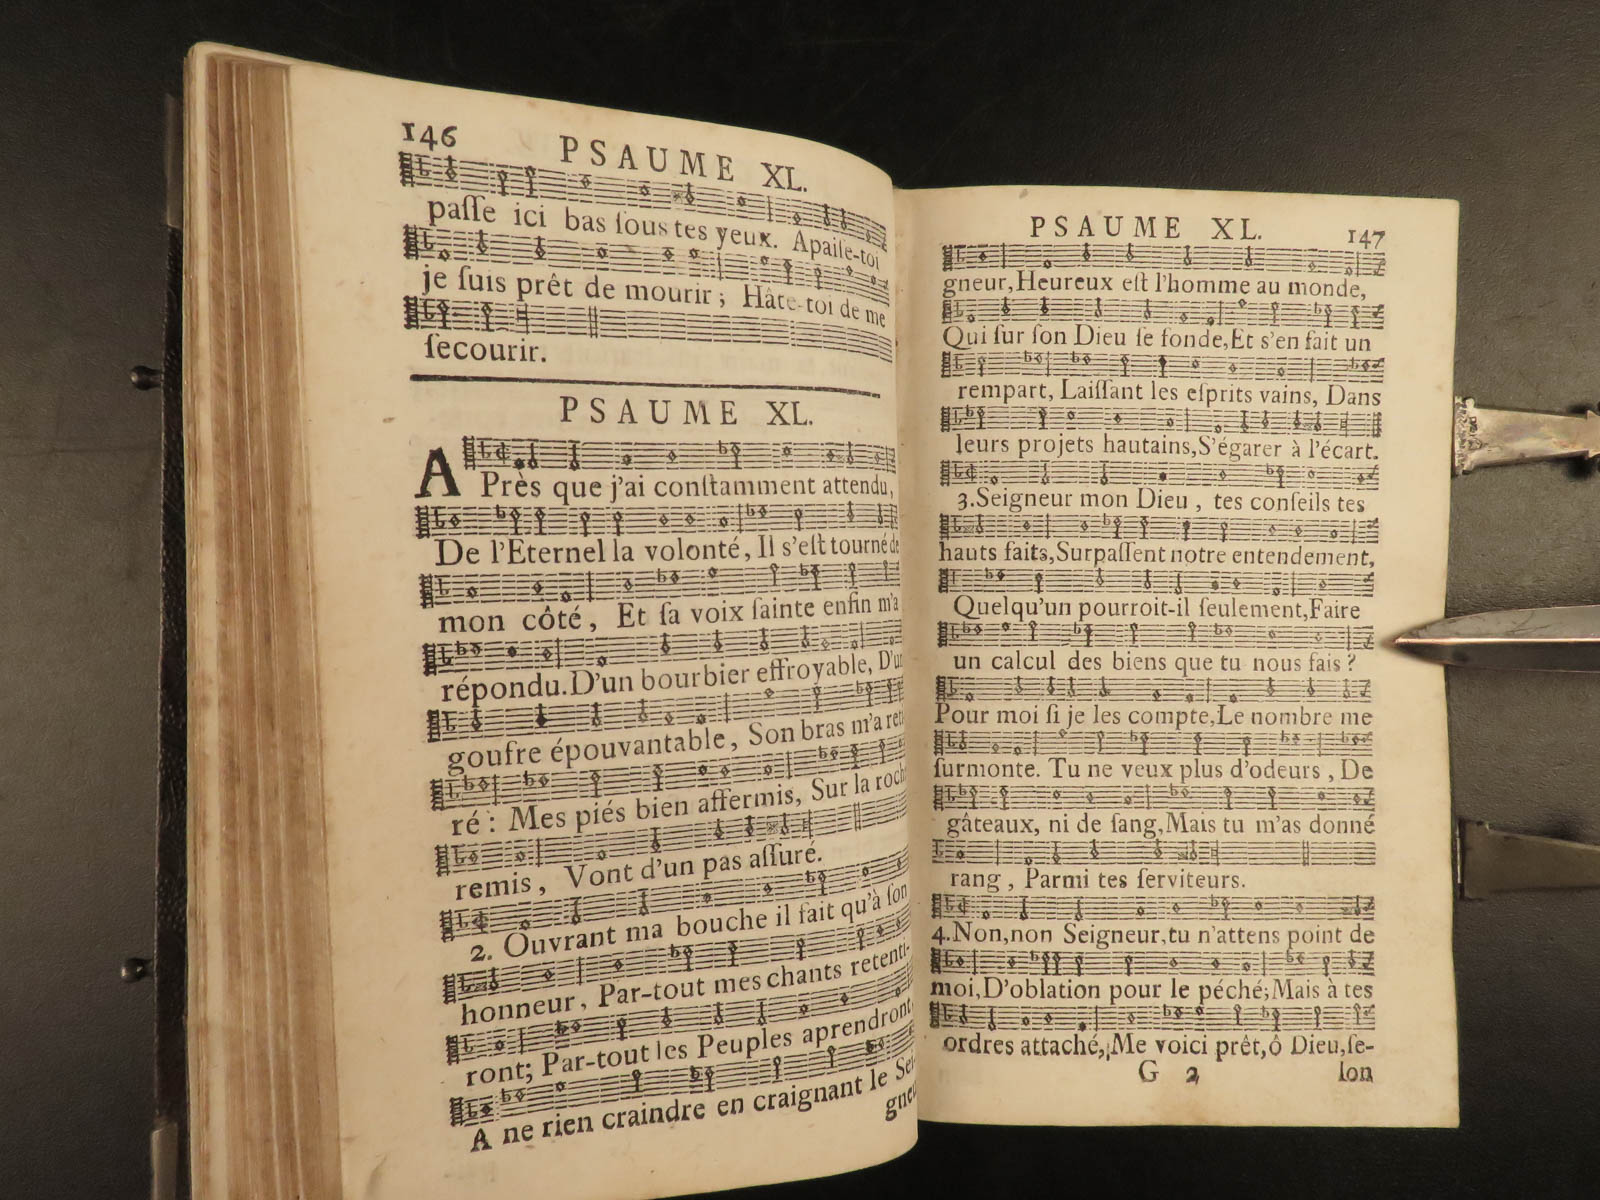 146
PSAUME XL.
paſſe ici bas ſous tes yeux. Apaiſe-toi
je ſuis prêt de mourir; Hâte-toi de me
ſecourir.
PSAUME XL.
APrès que j'ai conſtamment attendu,
De l'Eternel la volonté, Il s'eſt tourné de
mon côté, Et ſa voix ſainte enfin m'a
répondu. D'un bourbier effroyable, D'un
goufre épouvantable, Son bras m'a reti-
ré: Mes piés bien affermis, Sur la roche
remis, Vont d'un pas aſſuré.
2. Ouvrant ma bouche il fait qu'à ſon
honneur, Par-tout mes chants retenti-
ront; Par-tout les Peuples aprendront,
A ne rien craindre en craignant le Sei-
gneur
PSAUME XL.
147
gneur, Heureux eſt l'homme au monde,
Qui ſur ſon Dieu ſe fonde, Et s'en fait un
rempart, Laiſſant les eſprits vains, Dans
leurs projets hautains, S'égarer à l'écart.
3. Seigneur mon Dieu, tes conſeils tes
hauts faits, Surpaſſent notre entendement,
Quelqu'un pourroit-il ſeulement, Faire
un calcul des biens que tu nous fais?
Pour moi ſi je les compte, Le nombre me
ſurmonte. Tu ne veux plus d'odeurs, De
gâteaux, ni de ſang, Mais tu m'as donné
rang, Parmi tes ſerviteurs.
4. Non, non Seigneur, tu n'attens point de
moi, D'oblation pour le péché; Mais à tes
ordres attaché, Me voici prêt, ô Dieu, ſe-
G 2 lon